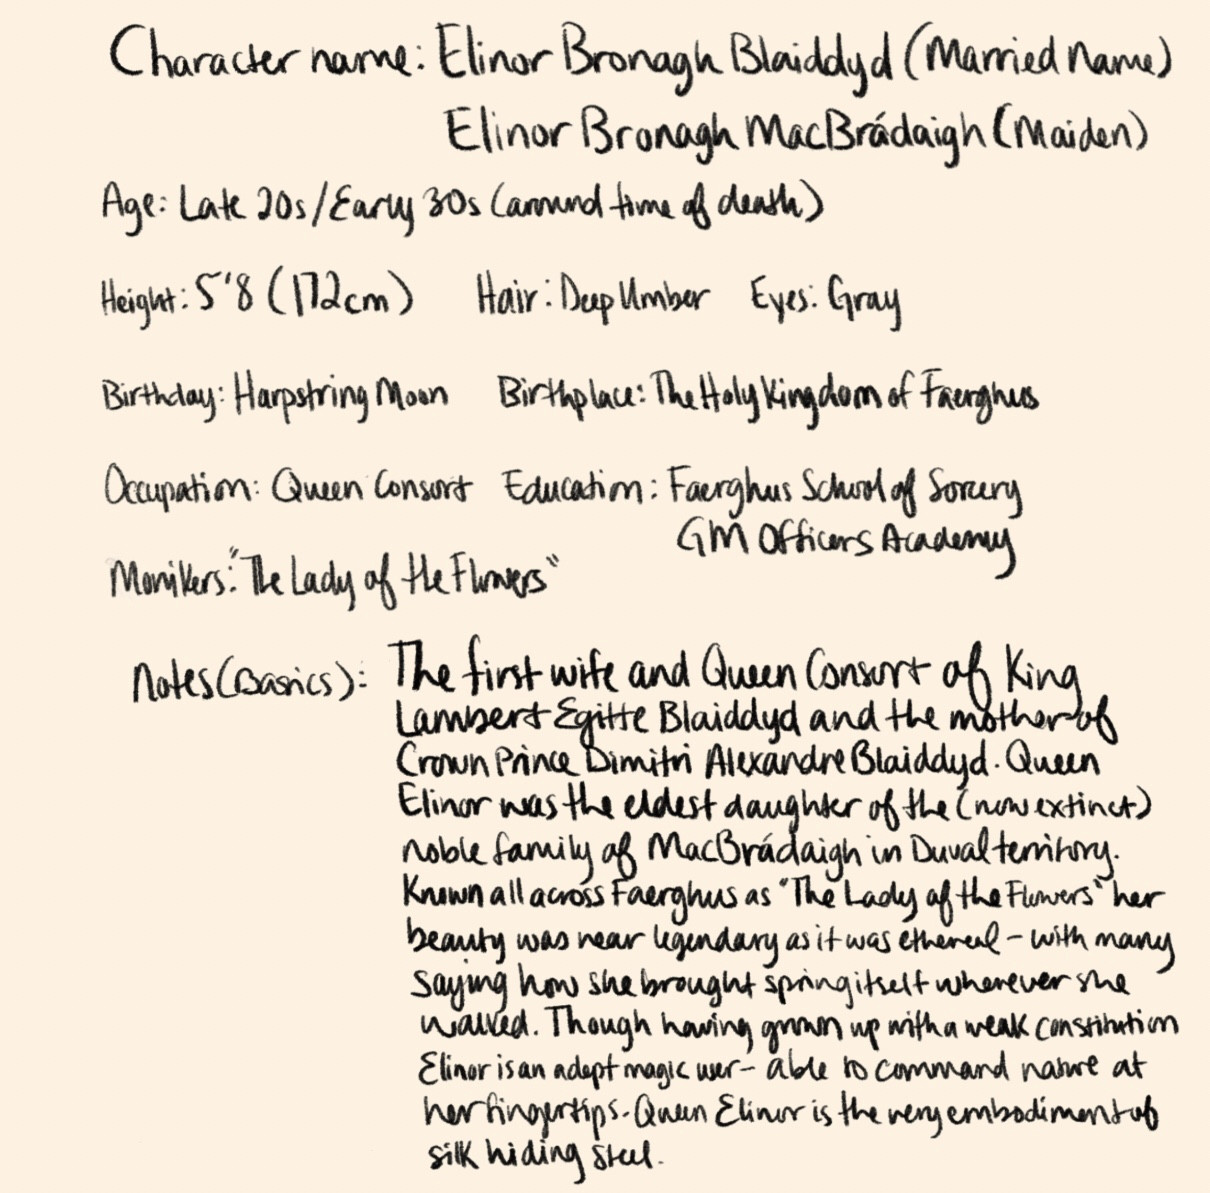 Character name: Elinor Bronagh Blaiddyd (Married Name)
Elinor Bronagh MacBrádaigh (Maiden)
Age: Late 20s/Early 30s (around time of death)
Height: 5'8 (172cm) Hair: Deep Umber Eyes: Gray
Birthday: Harpstring Moon Birthplace: The Holy Kingdom of Faerghus
Occupation: Queen Consort Education: Faerghus School of Sorcery
GM Officers Academy
Monikers: "The Lady of the Flowers"
Notes (Basics): The first wife and Queen Consort of King
Lambert Egitte Blaiddyd and the mother of
Crown Prince Dimitri Alexandre Blaiddyd. Queen
Elinor was the eldest daughter of the (now extinct)
noble family of MacBrádaigh in Duval territory.
Known all across Faerghus as "The Lady of the Flowers" her
beauty was near legendary as it was ethereal - with many
saying how she brought spring itself wherever she
walked. Though having grown up with a weak constitution
Elinor is an adept magic user - able to command nature at
her fingertips. Queen Elinor is the very embodiment of
silk hiding steel.